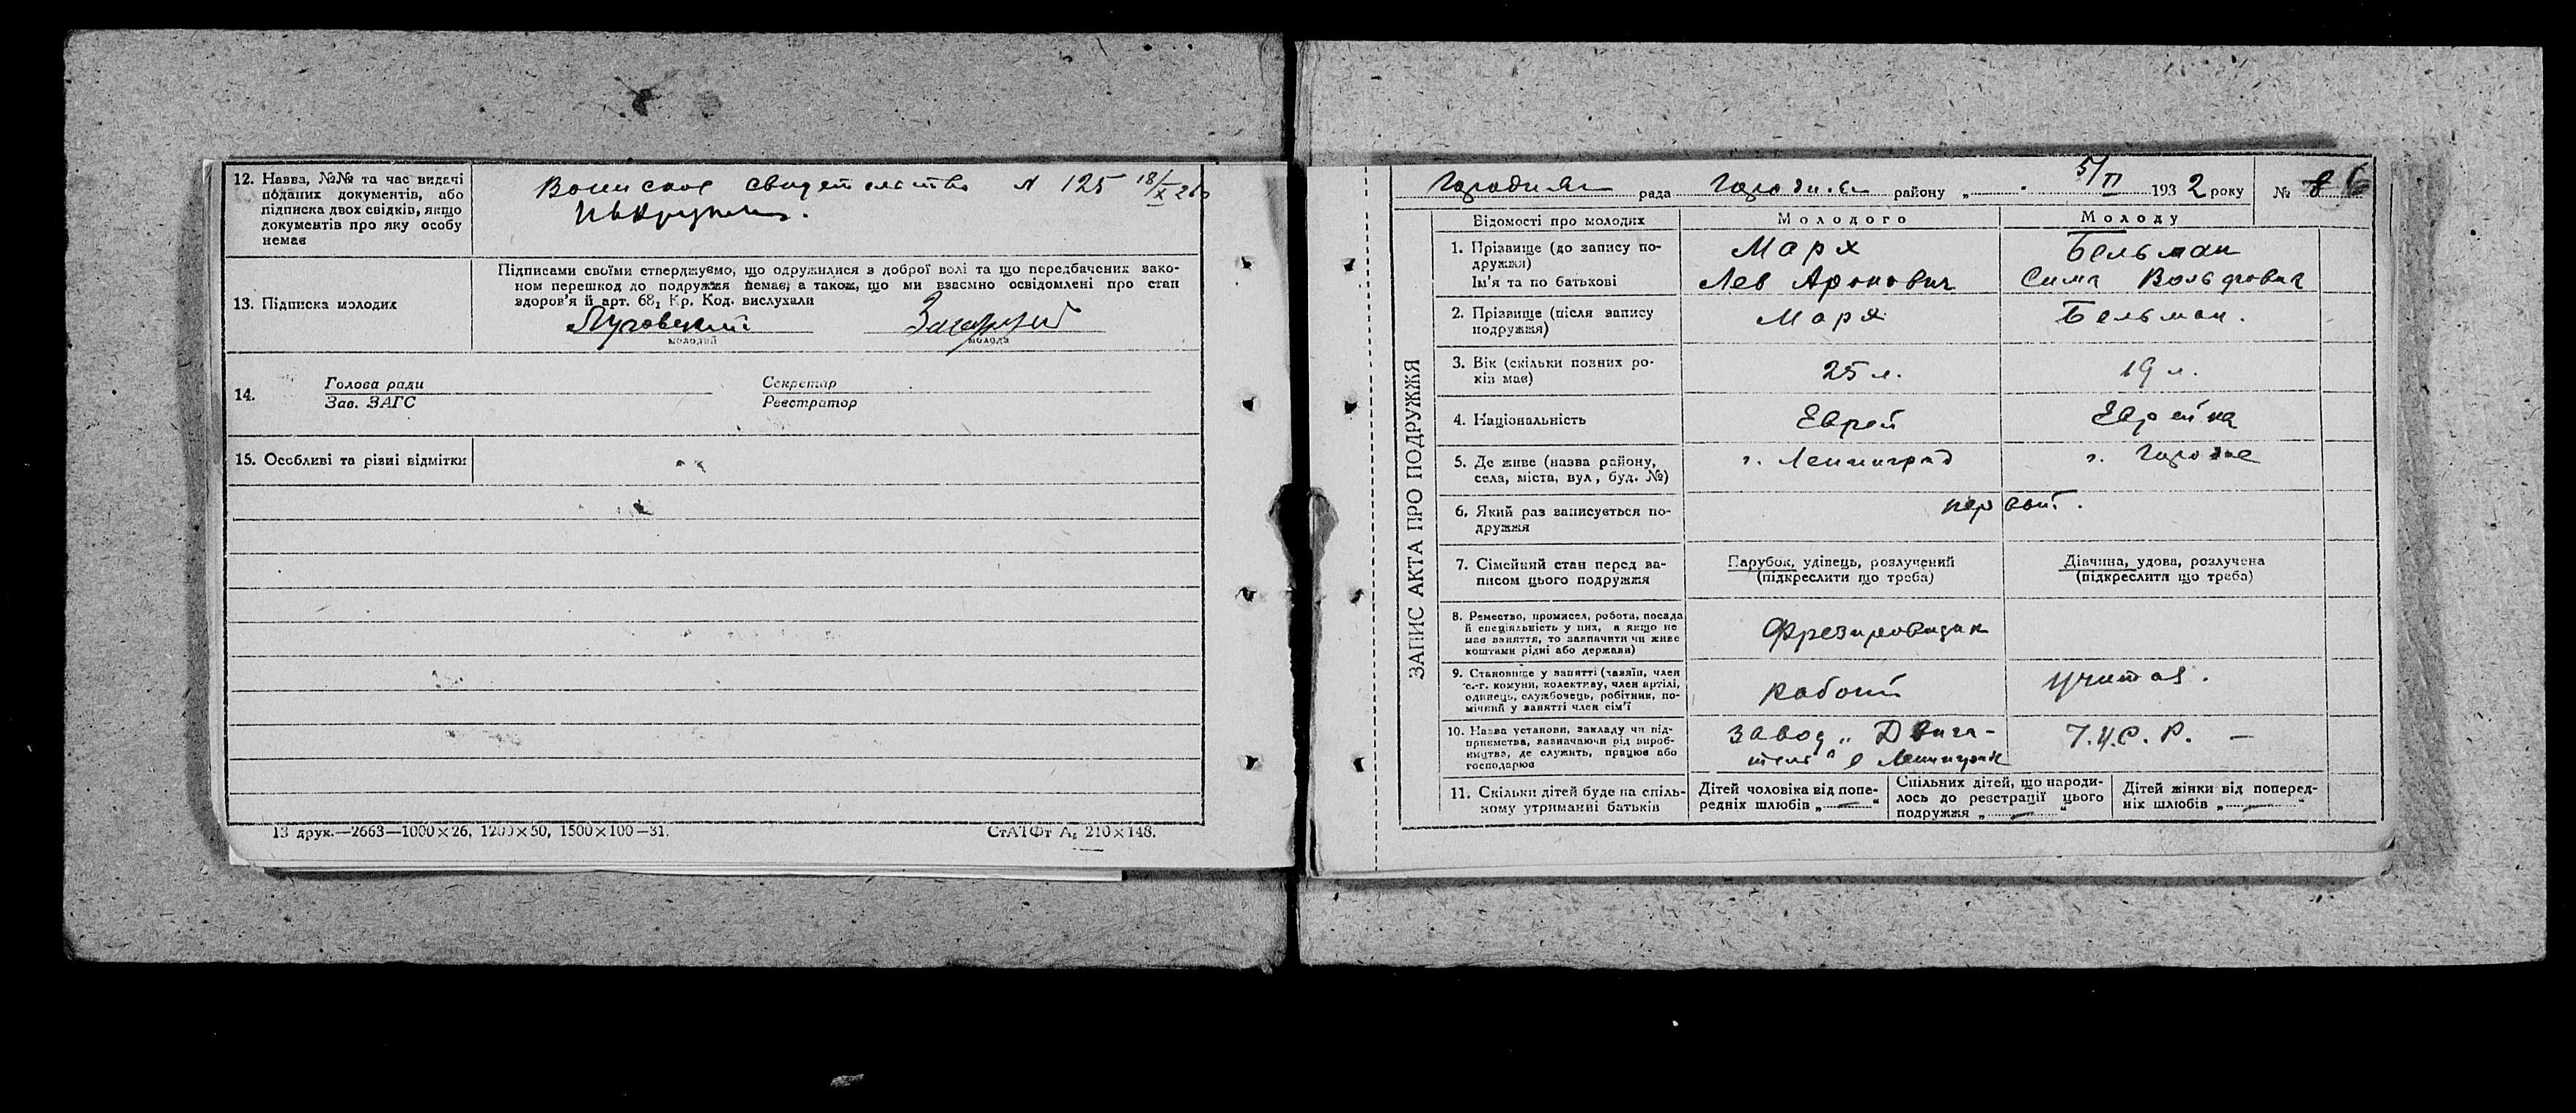 12.Назва, №№ та час видачі
поданих документів, або
підписка двох свідків, якщо
документів про яку особу
немає
Воинское свидетельство № 125 18/X 26
13. Підписка молодих
Підписами своїми стверджуємо, що одружилися з доброї волі та що передбачених зако-
ном перешкод до подружжя немає, а також, що ми взаємно освідомлені про стан
здоров'я й арт. 68₁ Кр. Код. вислухали
молодий
молода
14.
Голова ради
Зав. ЗАГС
Секретар
Реєстратор
15. Особливі та різні відмітки
13 друк.—2663—1000×26, 1200×50, 1500×100—31.
СтАТФт А₅ 210×148.
рада района „ 5/II 1932 року № 6
ЗАПИС АКТА ПРО ПОДРУЖЖЯ
Відомості про молодих
Молодого
Молоду
1. Прізвище (до запису по-
дружжя)
Ім'я та по батькові
Марх
Лев Аронович
Бельман
Сима Вольфовна
2. Прізвище (після запису
подружжя)
Марх
Бельман.
3. Вік (скільки повних ро-
ків має)
25 л.
19 л.
4. Національність
Еврей
Еврейка
5. Де живе (назва району,
села, міста, вул, буд. №)
г. Ленинград
г.
6. Який раз записується по-
дружжя
первый.
7. Сімейний стан перед за-
писом цього подружжя
Парубок, удівець, розлучений
(підкреслити що треба)
Дівчина, удова, розлучена
(підкреслити що треба)
8. Ремество, промисел, робота, посада
й спеціяльність у них, а якщо не
має заняття, то зазначити чи живе
коштами рідні або держави)
9. Становище у занятті (хазяїн, член
с.-г. комуни, колективу, член артілі,
одинець, службовець, робітник, по-
мічний у занятті член сім'ї
10. Назва установи, закладу чи під-
приємства, зазначаючи рід вироб-
ництва, де служить, працює або
господарює
завод „Двига-
тель" в Ленинграде
11. Скільки дітей буде на спіль-
ному утриманні батьків
Дітей чоловіка від попе-
редніх шлюбів „—"
Спільних дітей, що народи-
лось до реєстрації цього
подружжя „—"
Дітей жінки від поперед-
ніх шлюбів „—"